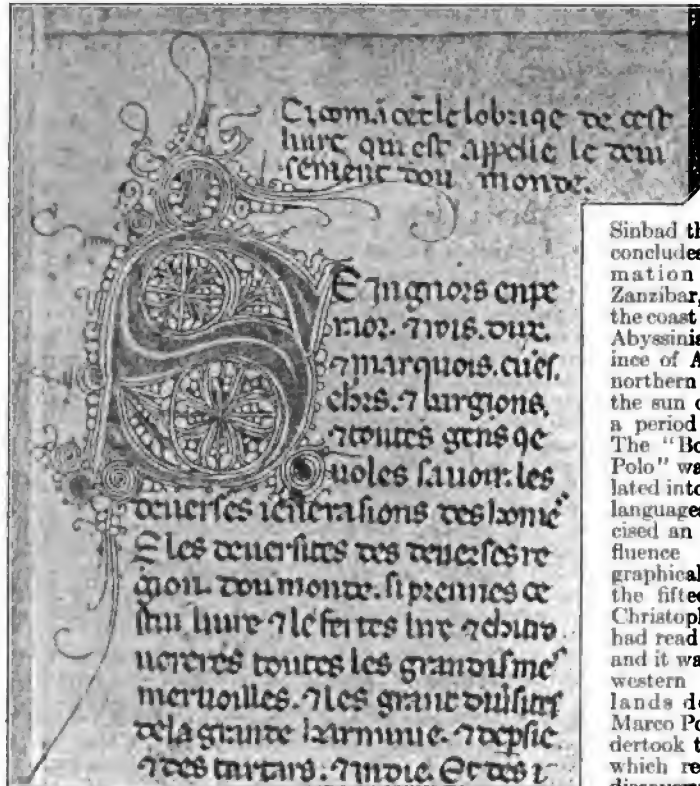 Ci comācēt le lobrique de cest
liure qui est appelle le deui
sement dou monde.
SEingnors enpe
raor. ⁊ rois. dux.
⁊ marquois. cuēs.
chrs. ⁊ burgions,
⁊ toutes gens qe
uoles sauoir. les
deuerses ienerasions des home
E les deuersites des deuerses re
gion. dou monde. si prennes ce
stui liure ⁊ le feites lire ⁊ chi tro
ueres toutes les grandisme
meruoilles. ⁊ les grant diuersites
de la grande harminie. ⁊ de psie
⁊ des tartars. ⁊ indie. Et des
Sinbad th
concludes
mation
Zanzibar,
the coast
Abyssinia
ince of A
northern
the sun
a period
The "Bo
Polo" wa
lated into
languages
cised an
fluence
graphical
the fiftee
Christoph
had read
and it wa
western
lands de
Marco Po
dertook t
which re